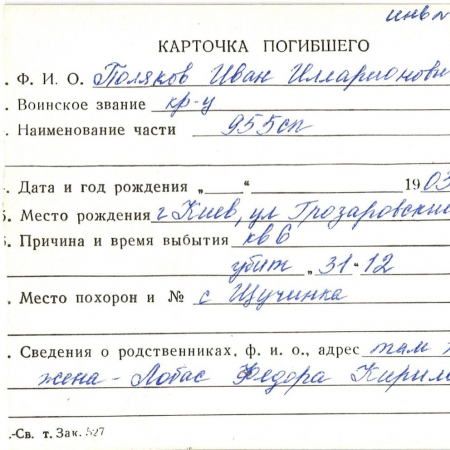 инв №
КАРТОЧКА ПОГИБШЕГО
. Ф. И. О. Поляков Иван Илларионови
. Воинское звание кр-ц
. Наименование части 955сп
. Дата и год рождения „ “ 1903
5. Место рождения г Киев, ул Грозаровский
6. Причина и время выбытия кв 6
убит „31“12
. Место похорон и № с Щучинка
. Сведения о родственниках, ф. и о., адрес там ж
жена - Лобас Федора Кирил
.-Св. т. Зак. 527